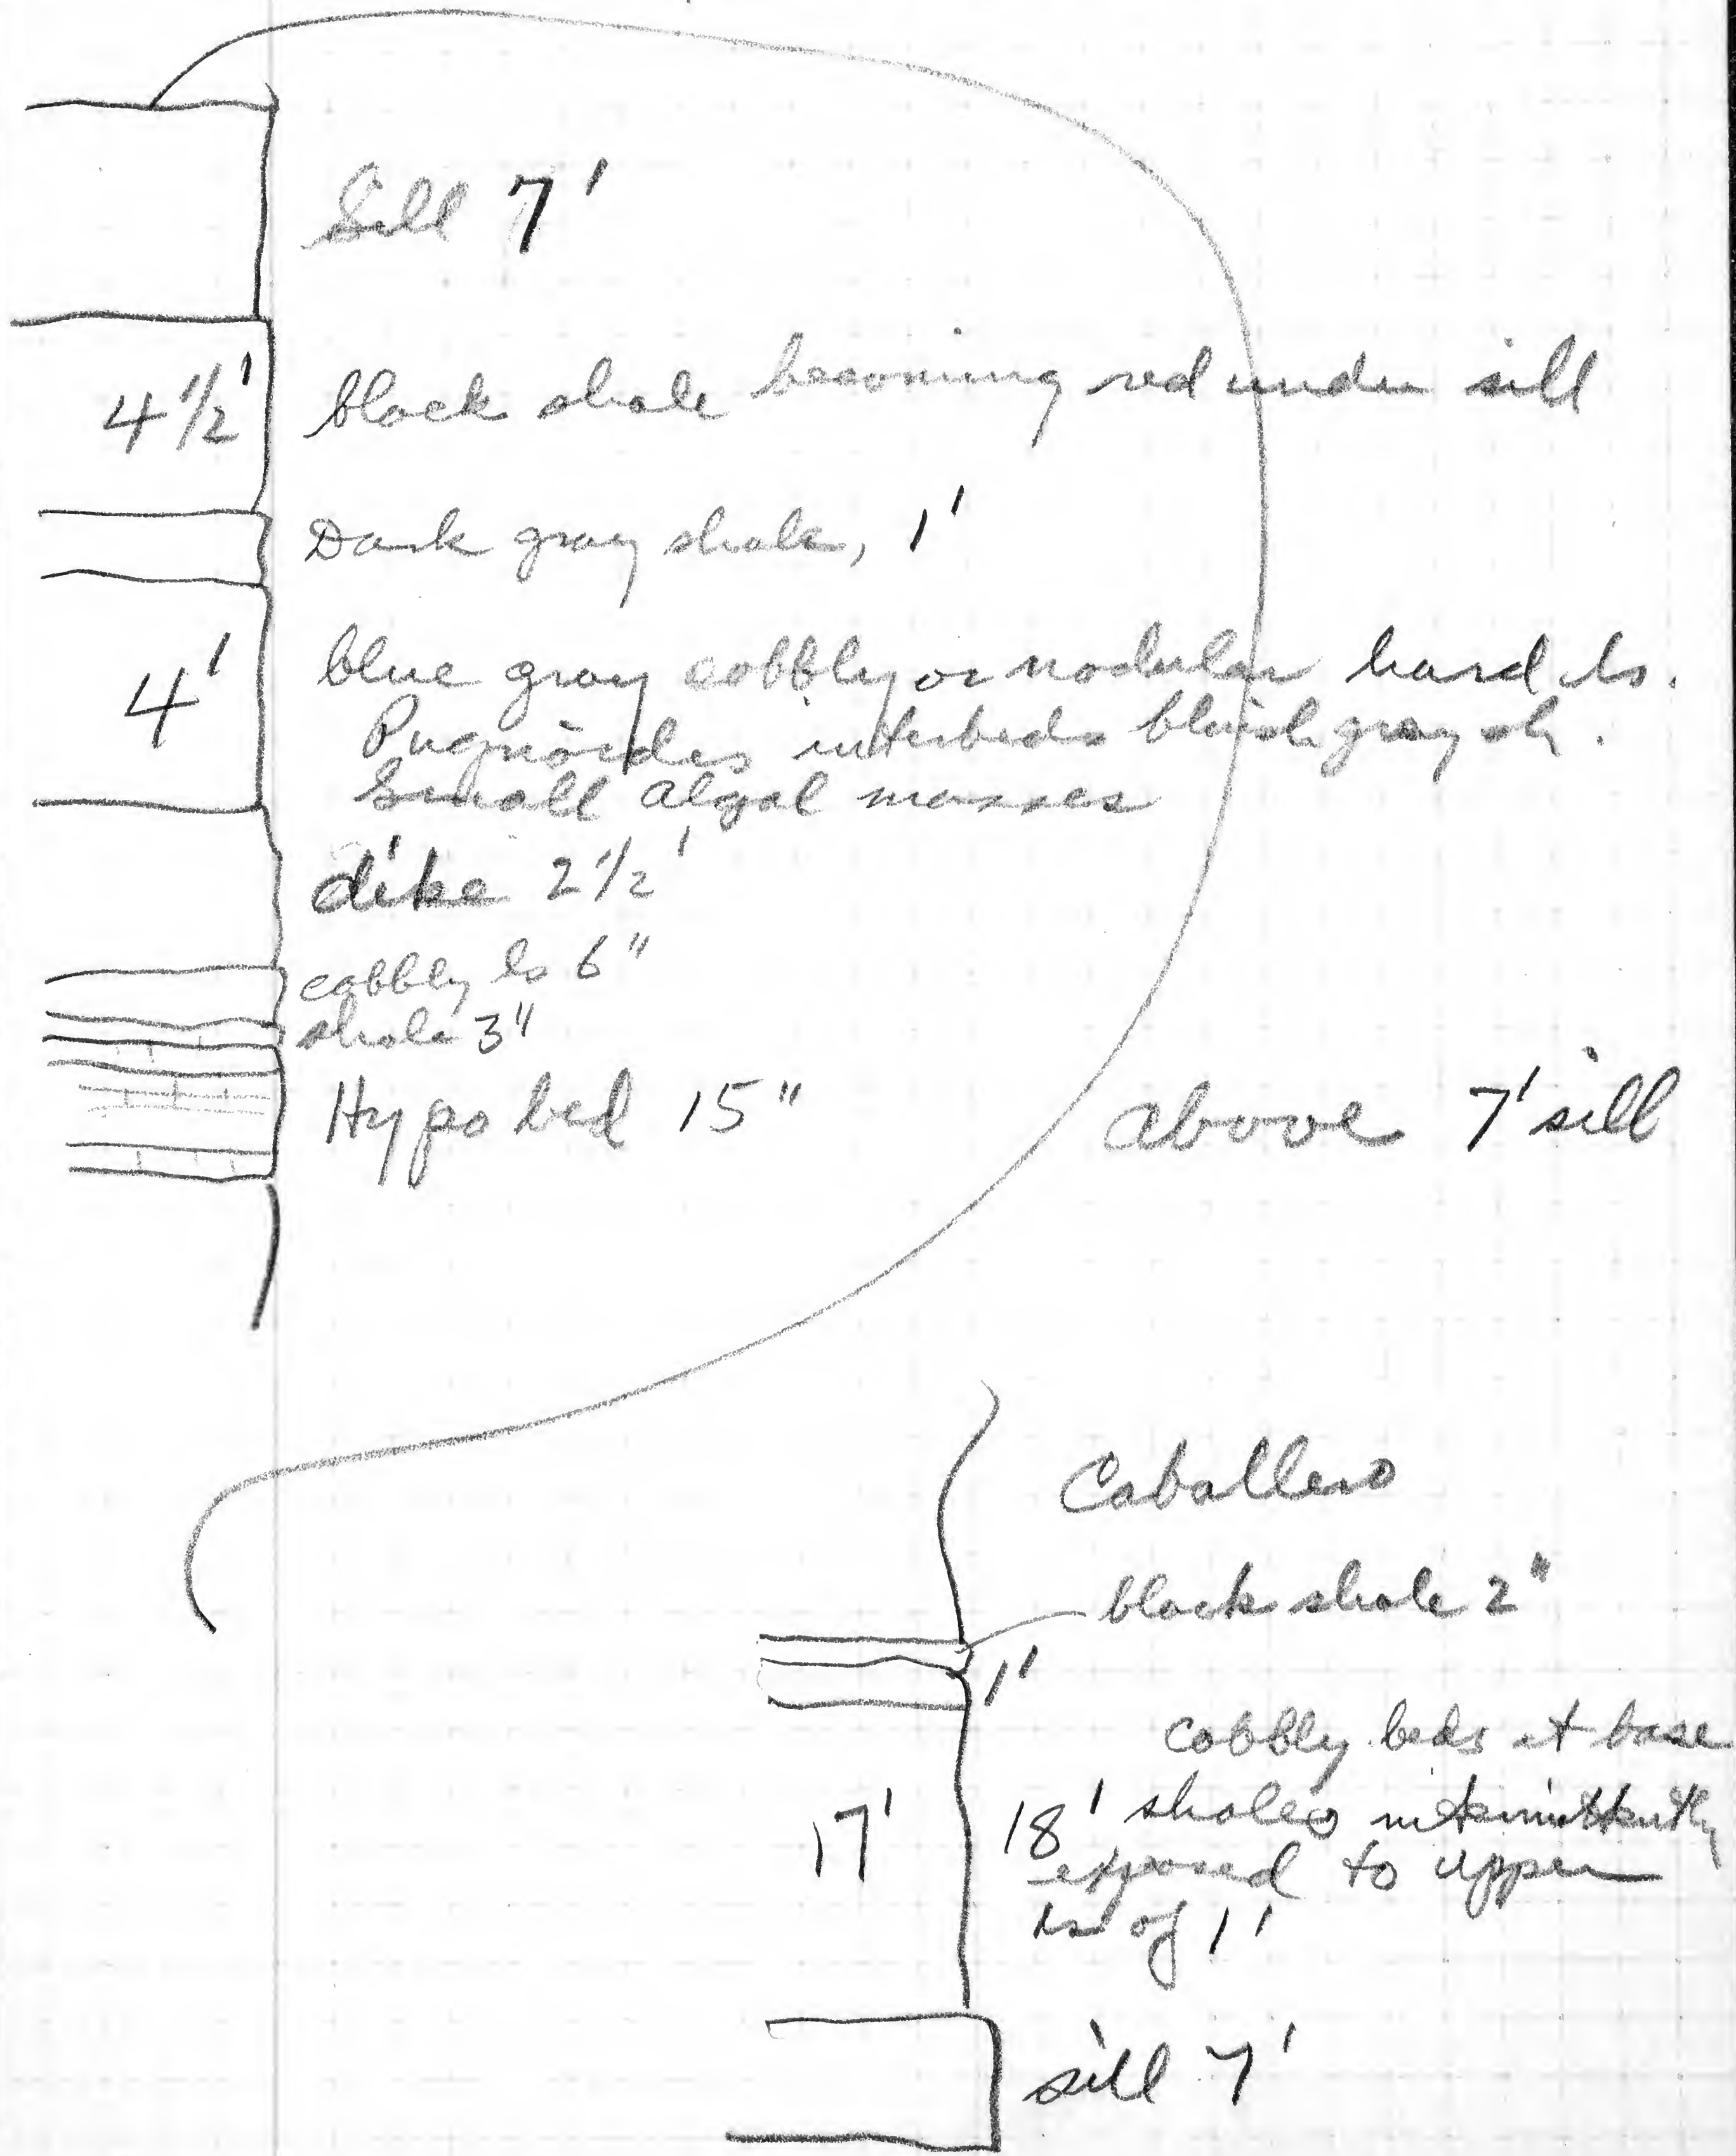 Sill 7'
4 1/2' black shale becoming red under sill
Dark gray shale, 1'
4' blue gray cobbly or nodular hard ls.
Pugnoides interbeds bluish gray sh.
Small algal masses
dike 2 1/2'
cobbly ls 6"
shale 3"
Hypo bed 15"
above 7' sill
Caballero
black shale 2"
1'
cobbly beds at base
17' 18' shales intermittently
exposed to upper
ls of 1'
sill 7'